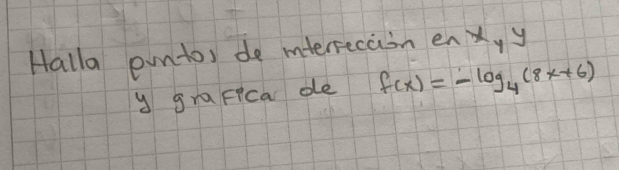 Halla puntos de intersección en x, y
y grafica de f(x) = -log₄(8x+6)